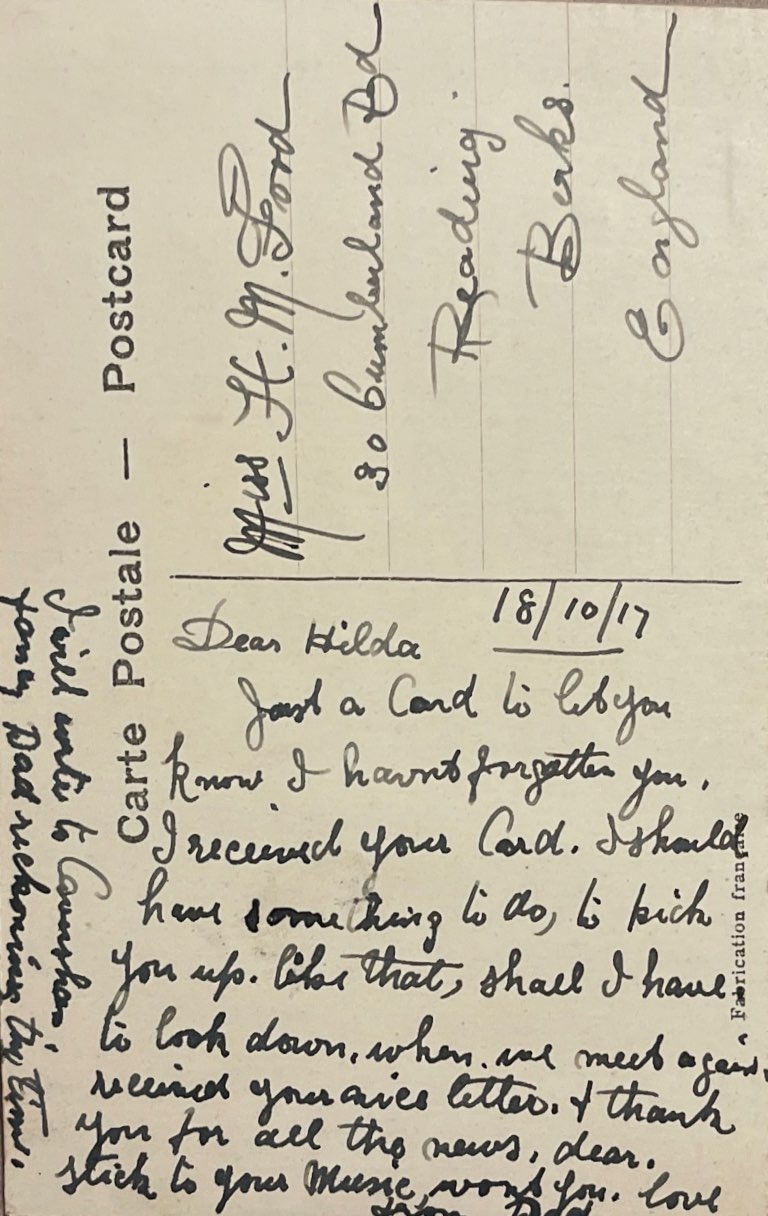 Carte Postale — Postcard
Miss H. M. Ford
30 Cumberland Rd
Reading
Berks.
England
18/10/17
Dear Hilda
Just a Card to let you
know I havnt forgotten you.
I received your Card. I should
have something to do, to pick
you up. like that, shall I have
to look down, when. we meet again.
received your nice letter. & thank
you for all the news, dear.
stick to your Music, wont you. love
from Dad
I will write to Caversham,
fancy Dad rickoning thy time.
Fabrication française